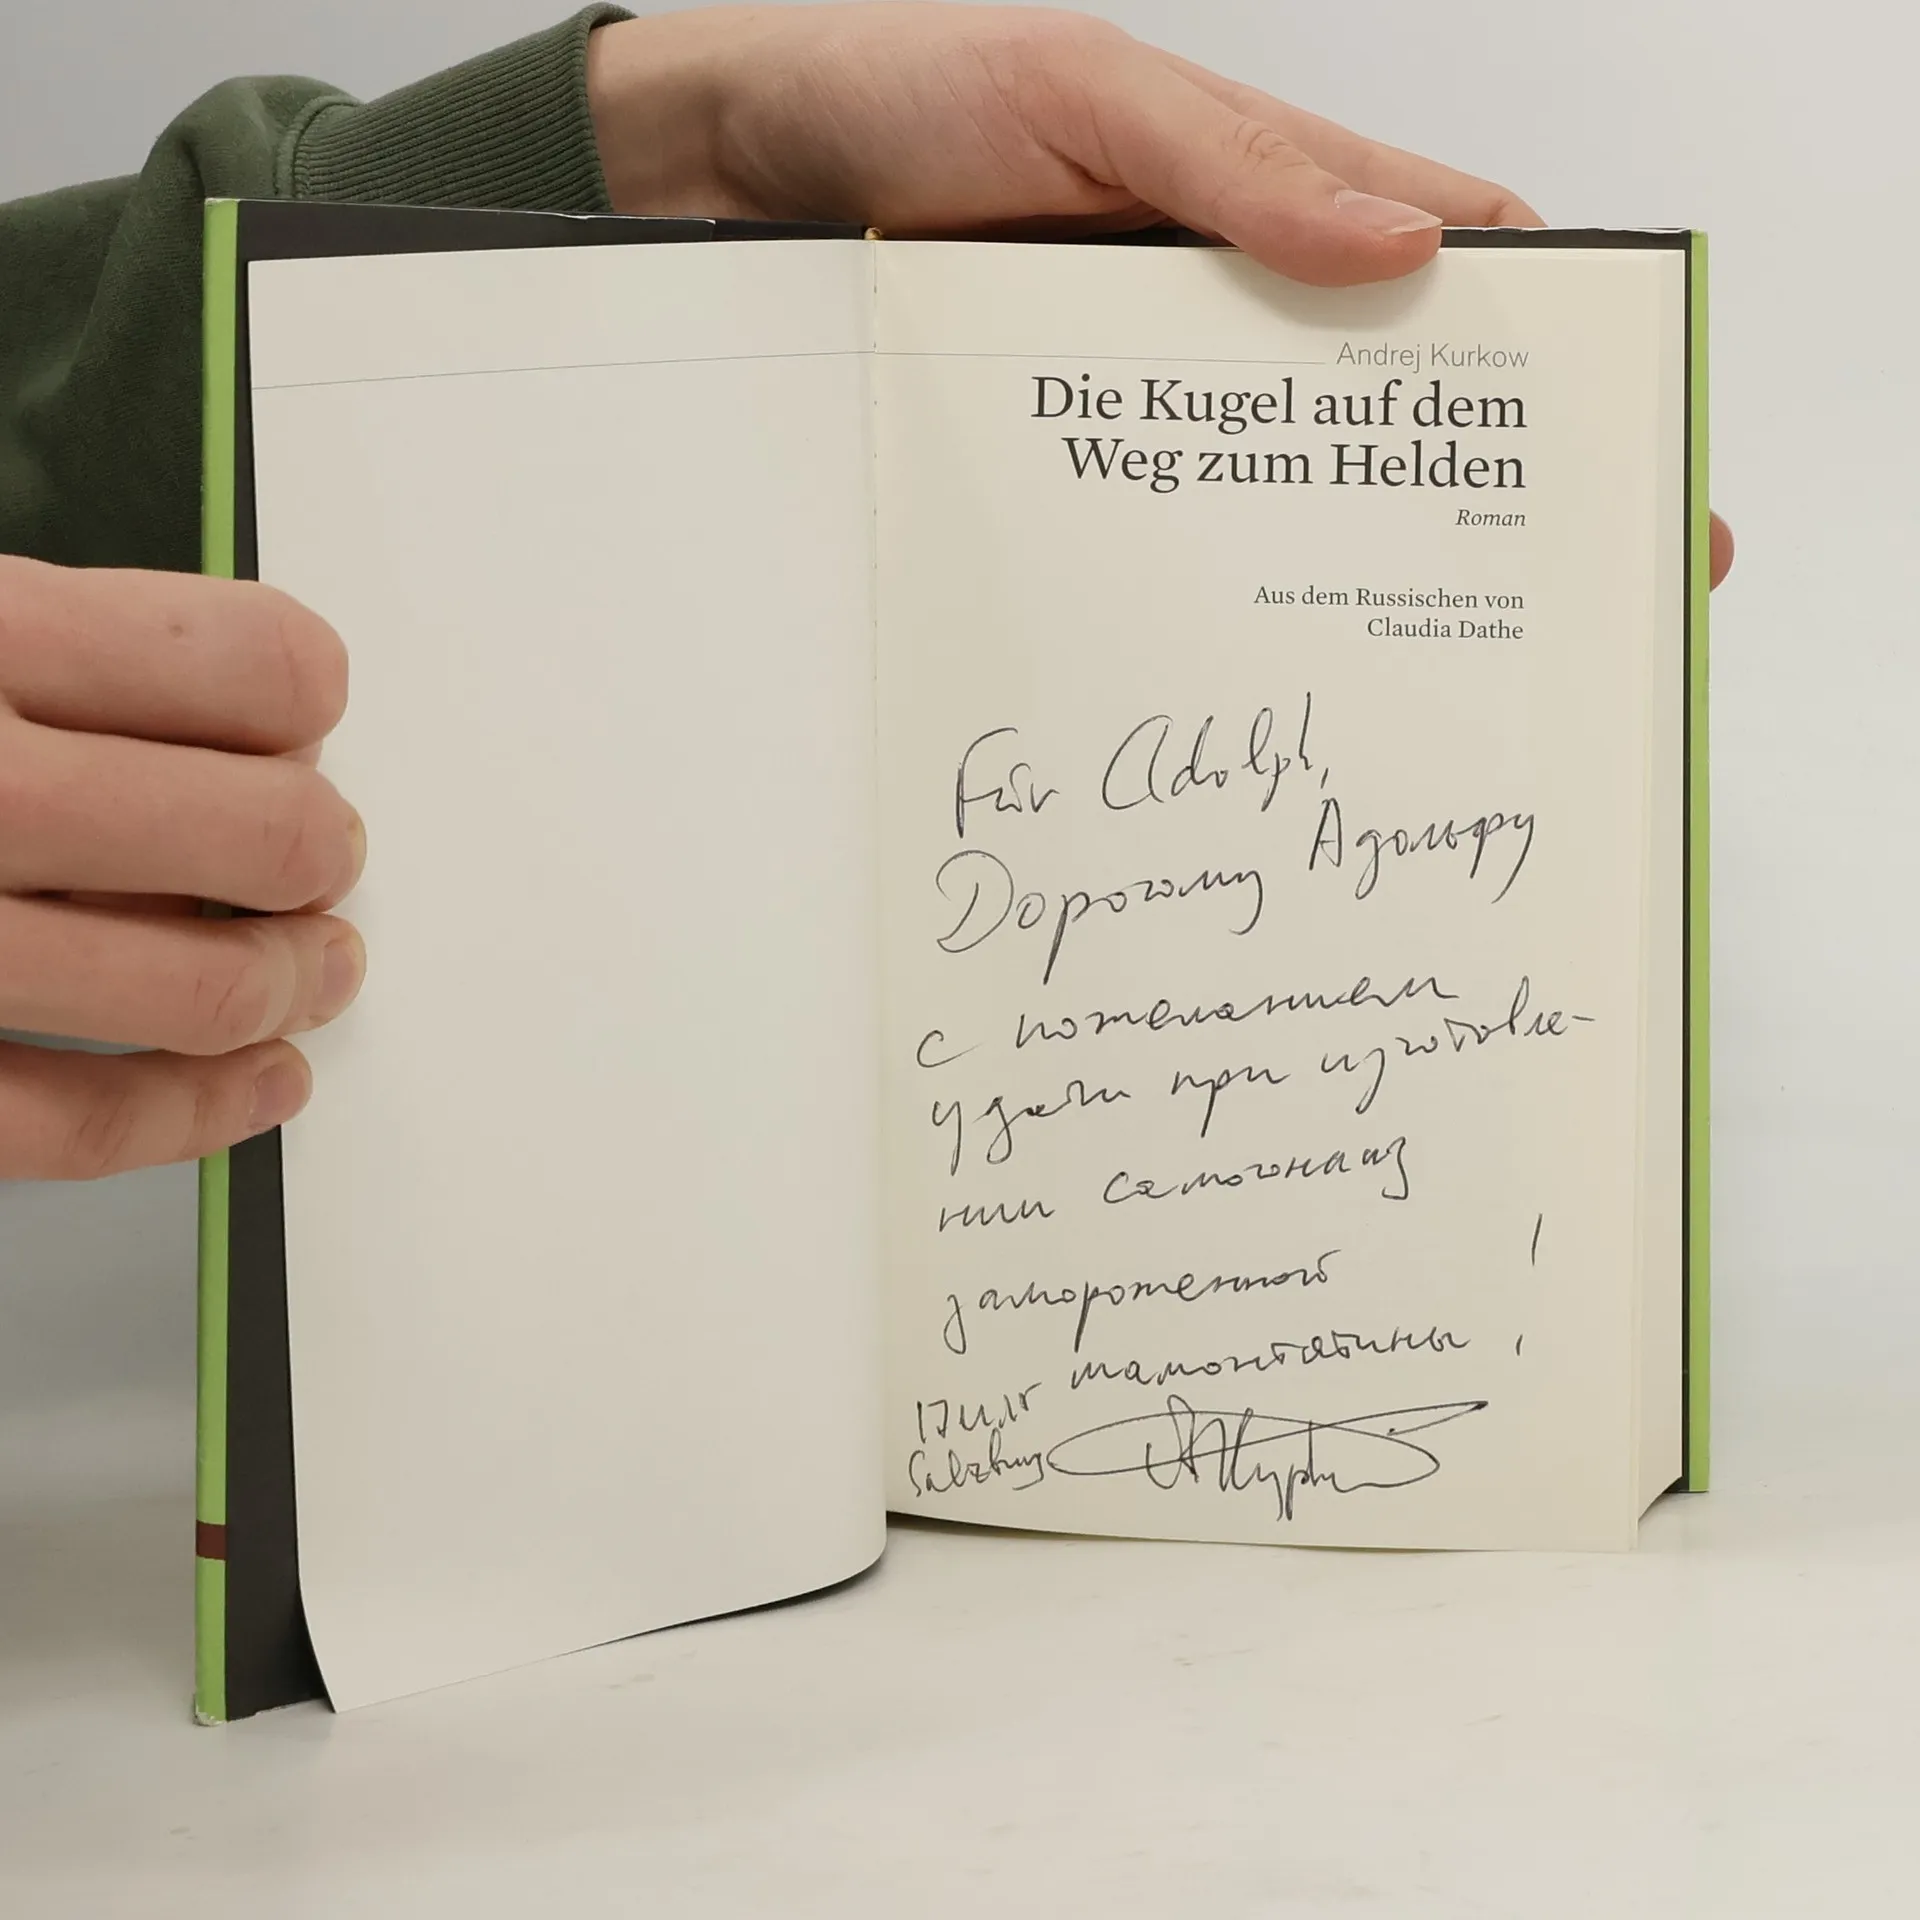 Andrej Kurkow
Die Kugel auf dem
Weg zum Helden
Roman
Aus dem Russischen von
Claudia Dathe
Für Adolph,
Дорогому Адольфу
с пожеланием
удачи при изготовле-
нии самогона из
замороженной
мамонтятины!
17
Salzburg